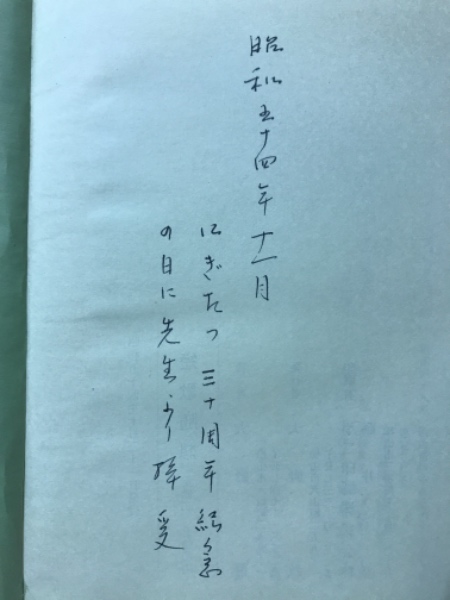 昭和五十四年十一月
にぎたつ三十周年紀念
の日に先生より拝受